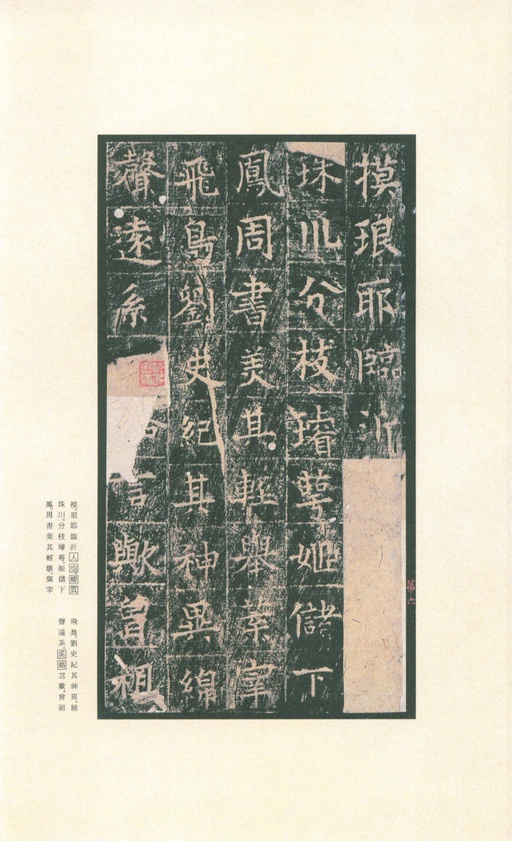 摸琅耶臨沂
珠川分枝璿萼姬儲下
鳳周書美其輕舉葉宰
飛鳥劉史紀其神異綿
聲遠系
言歟曾祖
視琅耶臨沂人也
珠川分枝璿萼姬儲下
鳳周書美其輕舉葉宰
飛鳥劉史紀其神異綿
聲遠系
言歟曾祖